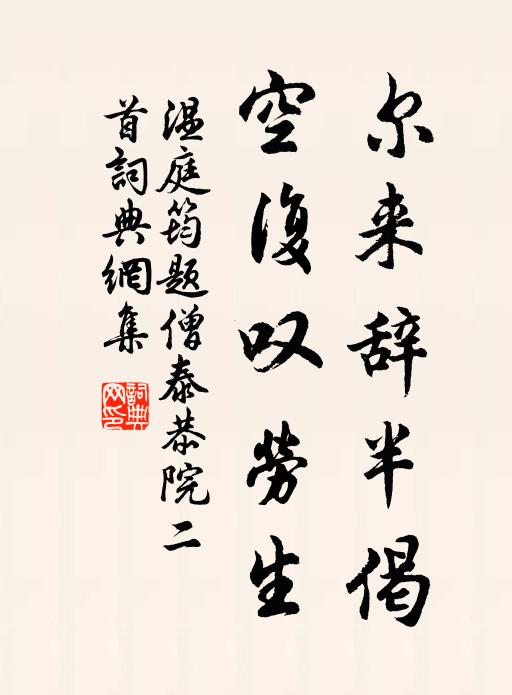 尔来辞半偈
空復叹勞生
温庭筠题僧泰恭院二
首詞典網集
詞典
网印